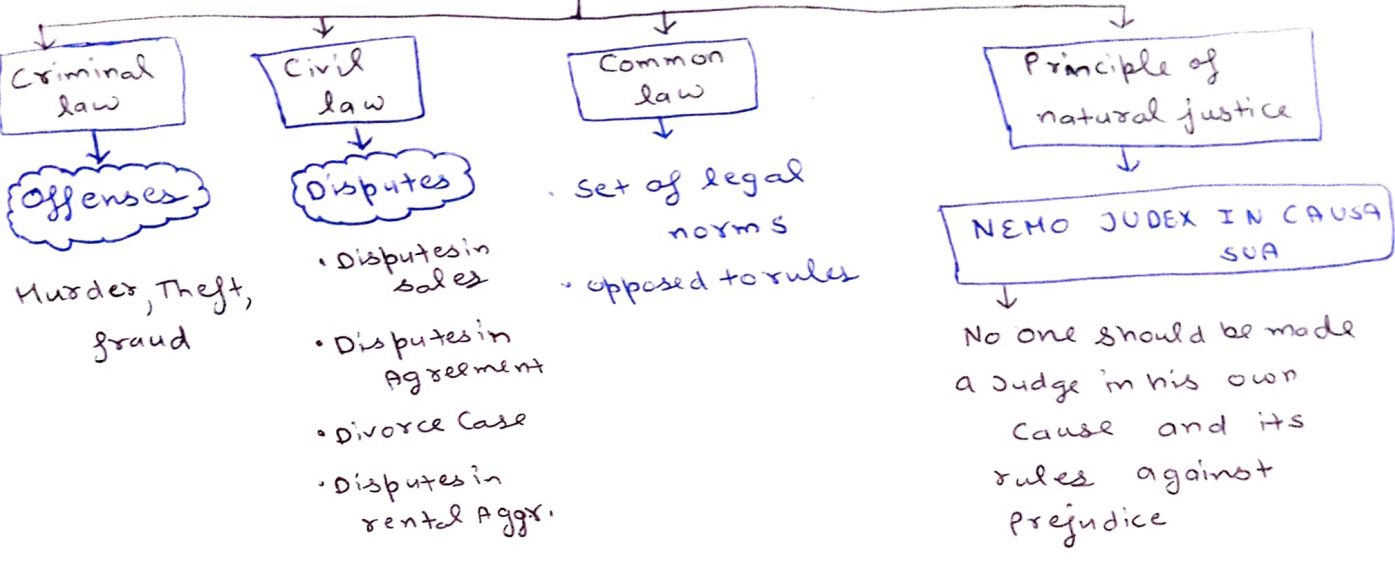 Criminal
law
Offenses
Murder, Theft,
fraud
Civil
law
Disputes
• Disputes in
sales
• Disputes in
Agreement
• Divorce Case
• Disputes in
rental Aggr.
Common
law
• Set of legal
norms
• opposed to rules
Principle of
natural justice
NEMO JUDEX IN CAUSA
SUA
No one should be made
a Judge in his own
Cause and its
rules against
Prejudice